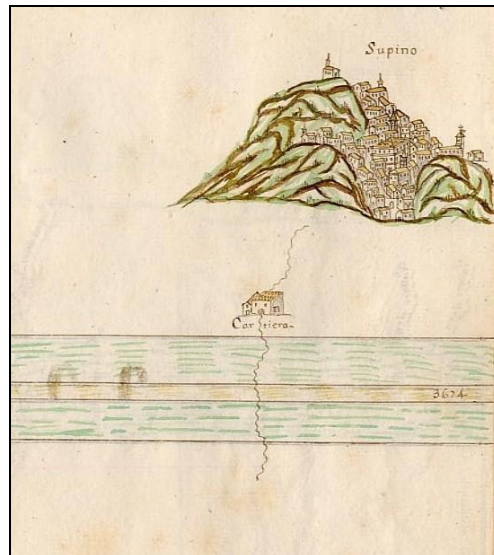 Supino
Cartiera
3674